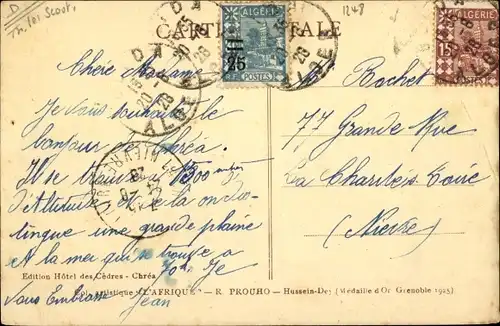 D
CARTE POSTALE
1248
ALGÉRIE
10
25
R.F. POSTES
ALGÉRIE
15
POSTES
Chère Madame
Je vous souhaite le
bonjour de Chréa.
Il se trouve à 1500 mètres
d'altitude et de là on dis-
tingue une grande plaine
et la mer qui se trouve à
70 k. Je
vous embrasse
Jean
Rochet
77 Grande Rue
La Charité s. Loire
(Nièvre)
Edition Hôtel des Cèdres - Chréa
Col. artistique "L'AFRIQUE" - R. PROUHO - Hussein-Dey (Médaille d'Or Grenoble 1925)